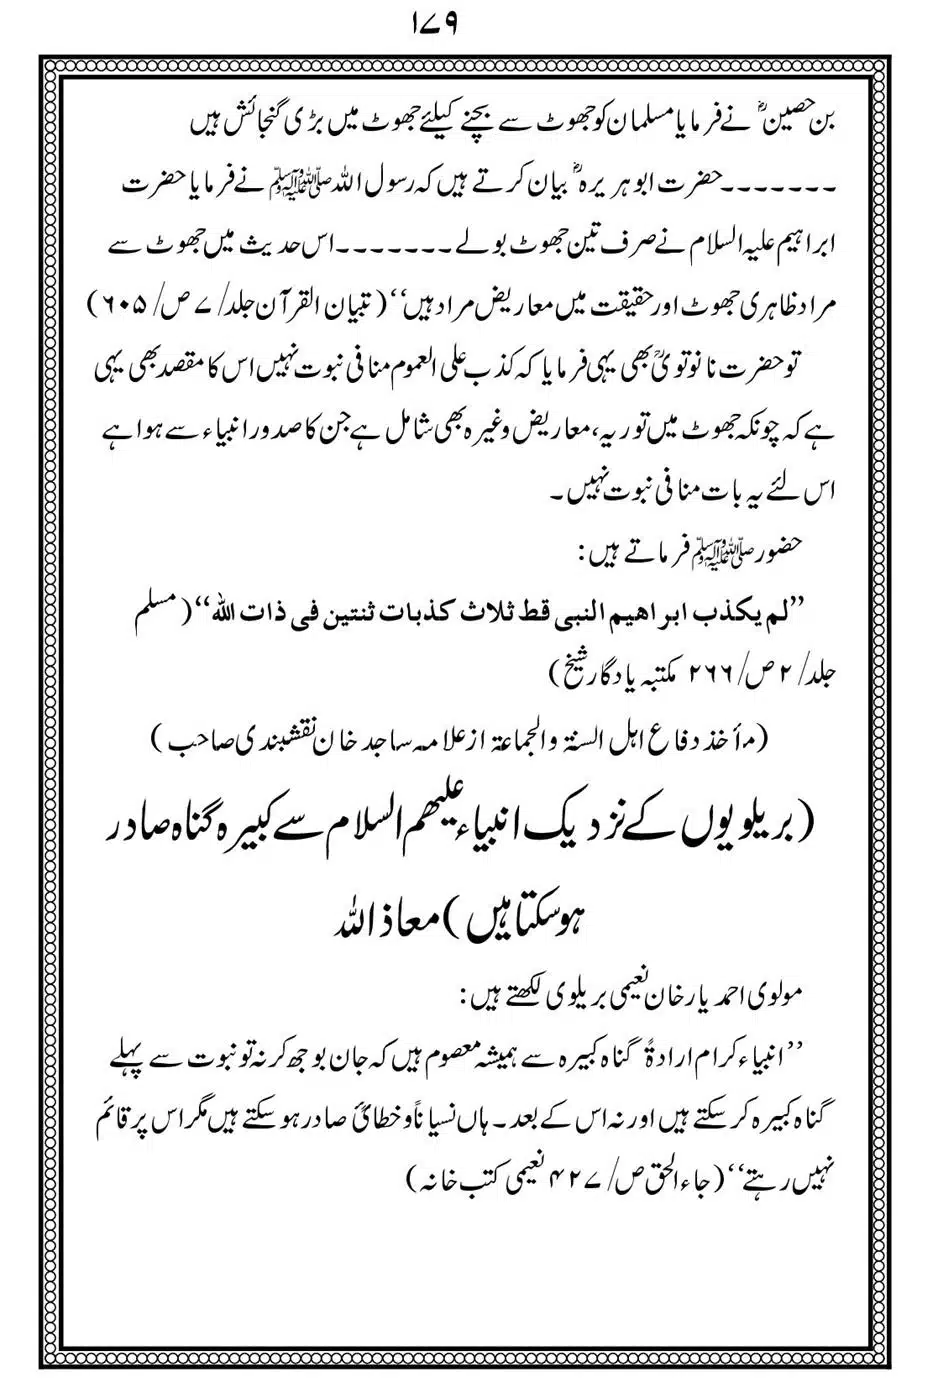 ۱۷۹
بن حصینؓ نے فرمایا مسلمان کو جھوٹ سے بچنے کیلئے جھوٹ میں بڑی گنجائش ہیں
۔۔۔۔۔۔۔حضرت ابو ہریرہؓ بیان کرتے ہیں کہ رسول اللہ ﷺ نے فرمایا حضرت
ابراہیم علیہ السلام نے صرف تین جھوٹ بولے ۔۔۔۔۔۔۔اس حدیث میں جھوٹ سے
مراد ظاہری جھوٹ اور حقیقت میں معاریض مراد ہیں‘‘ (تبیان القرآن جلد/ ۷ ص/ ۶۰۵)
تو حضرت نانوتویؒ بھی یہی فرمایا کہ کذب علی العموم منافی نبوت نہیں اس کا مقصد بھی یہی
ہے کہ چونکہ جھوٹ میں توریہ، معاریض وغیرہ بھی شامل ہے جن کا صدور انبیاء سے ہوا ہے
اس لئے یہ بات منافی نبوت نہیں۔
حضور ﷺ فرماتے ہیں:
’’لم یکذب ابراھیم النبی قط ثلاث کذبات ثنتین فی ذات اللہ‘‘ (مسلم
جلد/ ۲ ص/ ۲۶۶ مکتبہ یادگار شیخ)
(مأخذ دفاع اہل السنۃ والجماعۃ از علامہ ساجد خان نقشبندی صاحب)
(بریلویوں کے نزدیک انبیاء علیھم السلام سے کبیرہ گناہ صادر
ہو سکتا ہیں) معاذ اللہ
مولوی احمد یار خان نعیمی بریلوی لکھتے ہیں:
’’انبیاء کرام ارادۃً گناہ کبیرہ سے ہمیشہ معصوم ہیں کہ جان بوجھ کر نہ تو نبوت سے پہلے
گناہ کبیرہ کر سکتے ہیں اور نہ اس کے بعد۔ ہاں نسیاناً و خطائً صادر ہو سکتے ہیں مگر اس پر قائم
نہیں رہتے‘‘ (جاء الحق ص/ ۴۲۷ نعیمی کتب خانہ)